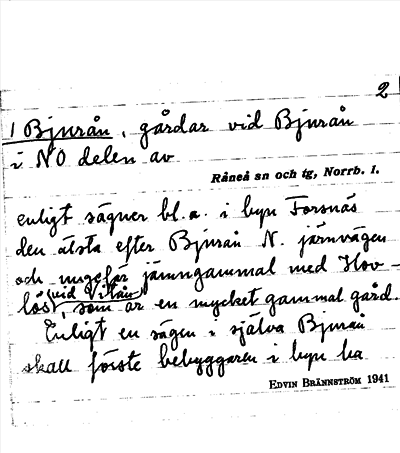 2
1 Bjurån, gårdar vid Bjurån
i NO delen av
Råneå sn och tg, Norrb. l.
enligt sägner bl.a. i byn Forsnäs
den älsta efter Bjurån N. järnvägen
och ungefär jämngammal med Hov-
lös (vid Vitån), som är en mycket gammal gård.
Enligt en sägen i själva Bjurån
skall förste bebyggaren i byn ha
EDVIN BRÄNNSTRÖM 1941